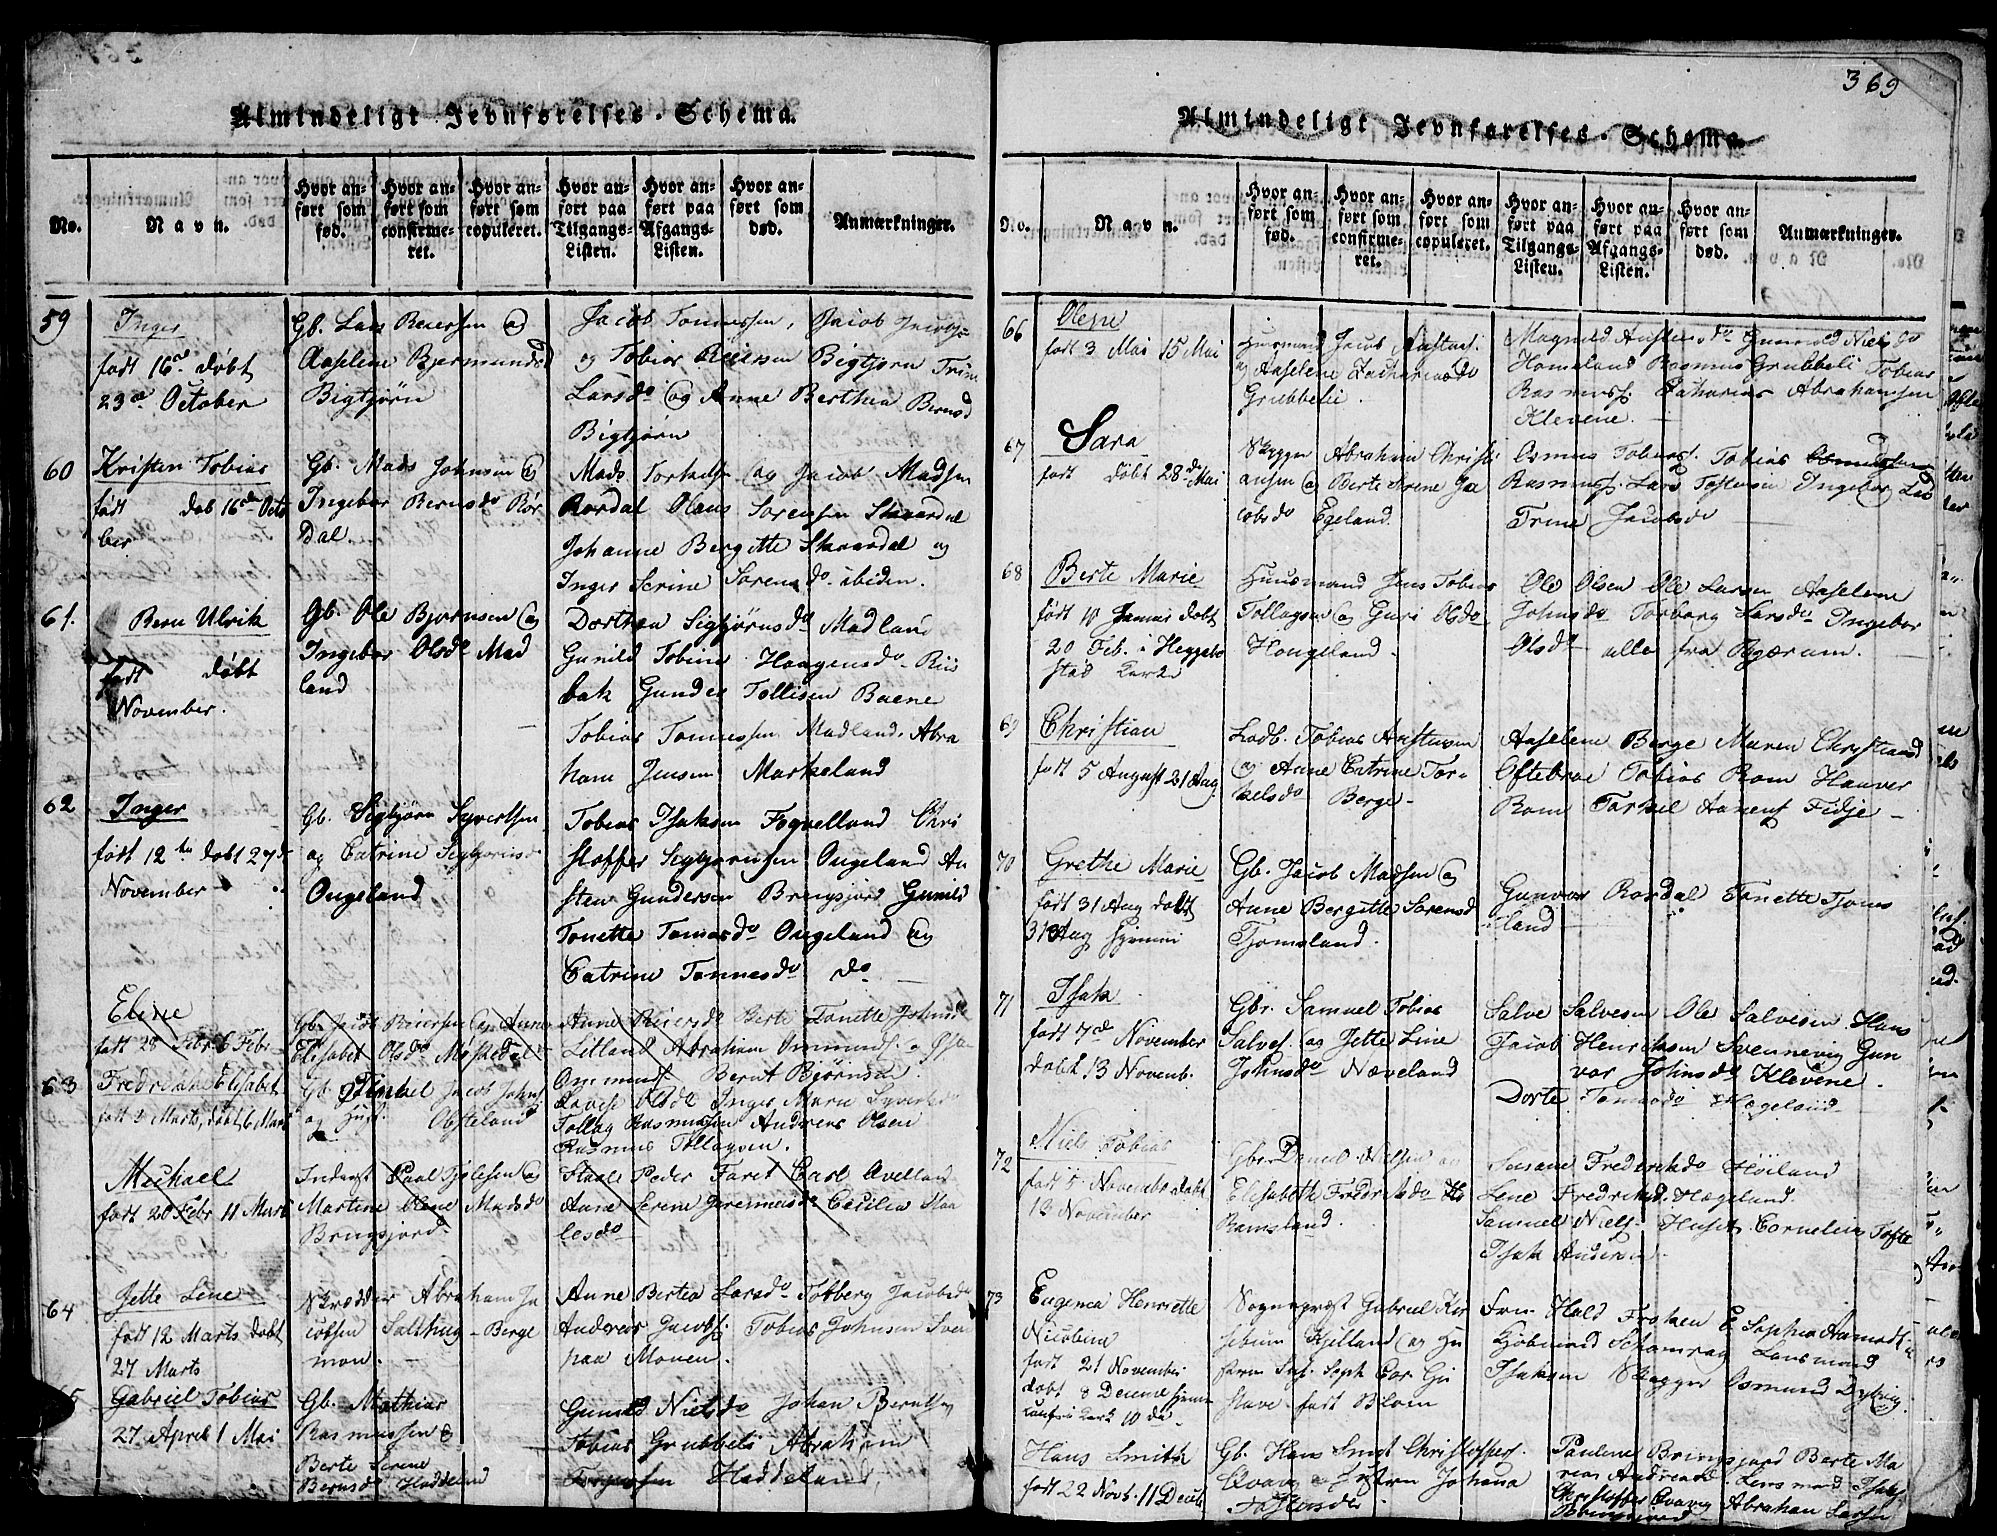 Almindeligt Jevnførelses-Schema.
No.
Navn.
Hvor anført som fød.
Hvor anført som confirmeret.
Hvor anført som copuleret.
Hvor anført paa Tilgangs-Listen.
Hvor anført paa Afgangs-Listen.
Hvor anført som død.
Anmærkninger.
59
Inger
født 16de døbt
23de October
Gb. Lars Reiersen og
Aaselene Bjermunds
Bigtjørn
Jacob Tonnessen, Jacob
og Tobias Reiersen Bigtjørn Trine
Larsdo og Anne Berthea Bernsd
Bigtjørn
60
Kristen Tobias
født døb 16de Octo
ber
Gb. Mads Johnsen og
Ingebor Bernsdo Rør
dal
Mads Torkelsen og Jacob Madsen
Rørdal Olaus Sørensen Skaardal
Johanne Bergitte Skaardal og
Inger Serine Sørensdo ibiden.
61.
Bern Ulrik
født døbt
November.
Gb. Ole Bjørnsen og
Ingebor Olsdo Mad
land
Dorthea Sigbjørnsdo Madland
Gunild Tobine Haagensdo Riis
bak Gunder Tollisen Baene
Tobias Tonnessen Madland Abra
ham Jensen Markeland
62
Inger
født 12te døbt 27de
November
Gb. Sigbjørn Syvertsen
og Catrine Sigbjørnsd
Ougeland
Tobias Isaksen Foqvelland Chri
stoffer Sigbjørnsen Ougeland Au
sten Gundersen Bringsjord Gunild
Tonette Tomasdo Ougeland og
Catrine Tonnesdo do
Elene
født 28 Febr 6 Febr
Gb. Jacob Reiersen og Anne
Elisabet Olsdo Møskedal
Anne Reiersdo Berte Tonette Johnsdo
Letland Abraham Ommunds.
Ommunds. Bernt Bjørnsen
63
Fredrikke Elisabet
født 2 Marts, døbt 6 Mart
Gb. Jacob Johns.
og Ofteland
Olsdo Inger Maria Syvertsdo
Tollag Rasmussen Andreas Olsen
Rasmus Tollagsen.
Michael
født 20 Febr 11 Mart
Inderst Paal Tjølesen og
Martine Olene Madsdo
Bringsjord
Peder Faret Carl Ovelland
Aune Serene Jeremiasdo Cecilia Staa
lesdo
64
Jette Lene
født 12 Marts døbt
27 Marts
Skrædder Abraham Ja
cobsen Salthug Berge
mon.
Anne Bertea Larsdo Tobberg Jacobsdo
Andreas Jacobs. Tobias Johnsen Svend
paa Monen.
Gabriel Tobias
27 April 1 Mai
Gb. Mathias
Rasmussen &
Berte Serene
Bernsdo Haddeland
Gunild Nielsdo Johan Berntsen
Tobias Grubbeli Abraham
Haddeland
369
Almindeligt Jevnførelses-Schema.
No.
Navn.
Hvor anført som fød.
Hvor anført som confirmeret.
Hvor anført som copuleret.
Hvor anført paa Tilgangs-Listen.
Hvor anført paa Afgangs-Listen.
Hvor anført som død.
Anmærkninger.
66
Olene
født 3 Mai 15 Mai
Huusmand Jacob Austens.
og Aaselene Zachariasdo
Grubbelie.
Magnild Austensdo Gunvold Niels do
Homeland Rasmus Grubbeli Tobias
Rasmuss. Zacharias Abrahamsen
Klevene.
67
Sara
født døbt 28de Mai
Skipper Abraham Christi
ansen og Berte Serene Ja
cobsdo Egeland
Osmus Tobias. Tobias
Rasmuss. Lars Tostensen Ingebor Lars
Trine Jacobsdo
68
Berte Marie
født 10 Januar døbt
20 Feb. i Heggebo
stad Kerke
Huusmand Jens Tobias
Tollagsen og Guri Olsdo
Haugeland
Ole Olsen Ole Larsen Aaselene
Johnsdo Torborg Larsdo Ingebor
Olsdo alle fra Bgærum.
69
Christian
født 5 August 21 Aug.
Ladb. Tobias Austensen
og Anne Catrine Tor-
kelsdo Berge
Aaselene Berge Maren Chrystiansd
Oftebroe Tobias Rom Hauver
Rom Torkel Aanens Fidje
70
Grethe Marie
født 31 Aug døbt
31 Aug hjemme
Gb. Jacob Madsen og
Anne Bergitte Sørensd
Tjomsland.
Gunvor Rørdal Tonette Tjoms
land
71
Isak
født 7de November
døbt 13 Novemb.
Gbr. Samuel Tobias
Salves. og Jette Line
Johnsdo Næveland
Salve Salvesen Ole Salvesen Hans
Jacob Henriksen Svennevig Gun
vor Johnsdo Klevene.
Dorte Tomasdo Hægeland
72
Niels Tobias
født 5 November døbt
13 November
Gbr. Daniel Nielsen og
Elisabeth Fredriksdo
Ramsland.
Susane Fredriksdo Høiland
Lene Fredriksd. Hægeland.
Samuel Niels. Huset Cornelius Tofte
Isak Andersen
73
Eugenia Henriette
Nicobine
født 21 November
døbt 8 Decembr hjemme
Kerk 10 do
Sognepræst Gabriel Kir
sebom Kielland og Gu
Soph. Cor. Gu
stave født Blom
Fru Hald Frøken E. Sophia Aamodt
Kjøbmand Schamvag Lensmand
Isaksen Skipper Osmund Dyhvig
Hans Smith
født 22 Novb. 11 Decbr
Gb. Hans Smit Christoffers.
Qvavig og Johana
Tostensdo
Pauline Bringsjord Berte Ma
rea Andreasd Lensmand Isaks.
Christoffer Qvavig Abraham Larsen